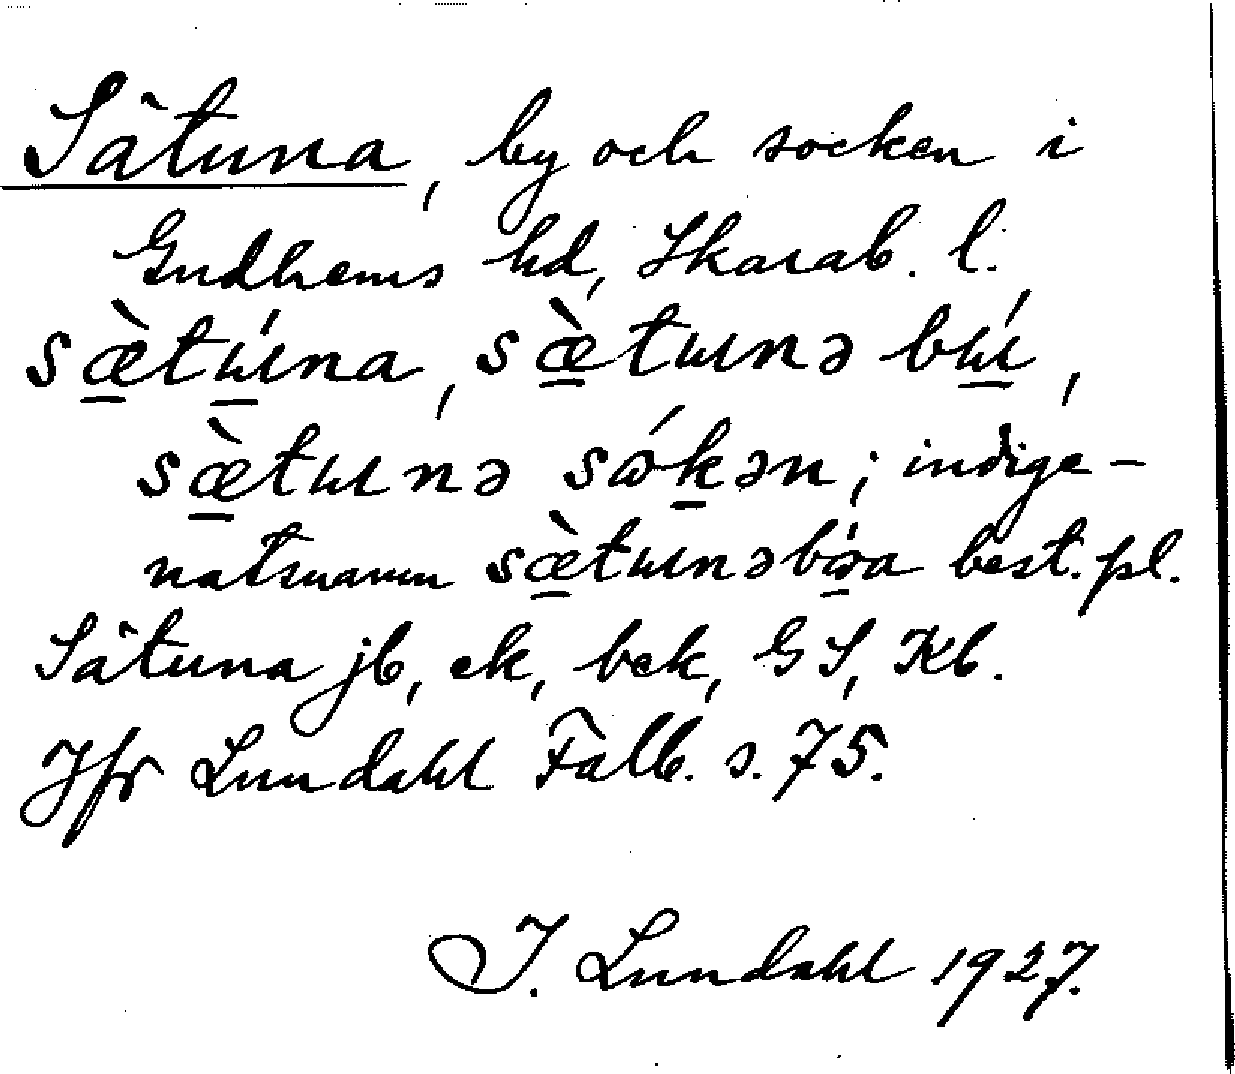 Sätuna, by och socken i
Gudhems hd, Skarab. l.
sæ̀tɯ́na, sæ̀tɯnə bɯ́,
sæ̀tɯnə sɷ́kən; indige-
natsnamn sæ̀tɯnəbɷa best. pl.
Sätuna jb, ek, bek, GS, Kb.
Jfr Lundahl Falb. s. 75.
I. Lundahl 1927.